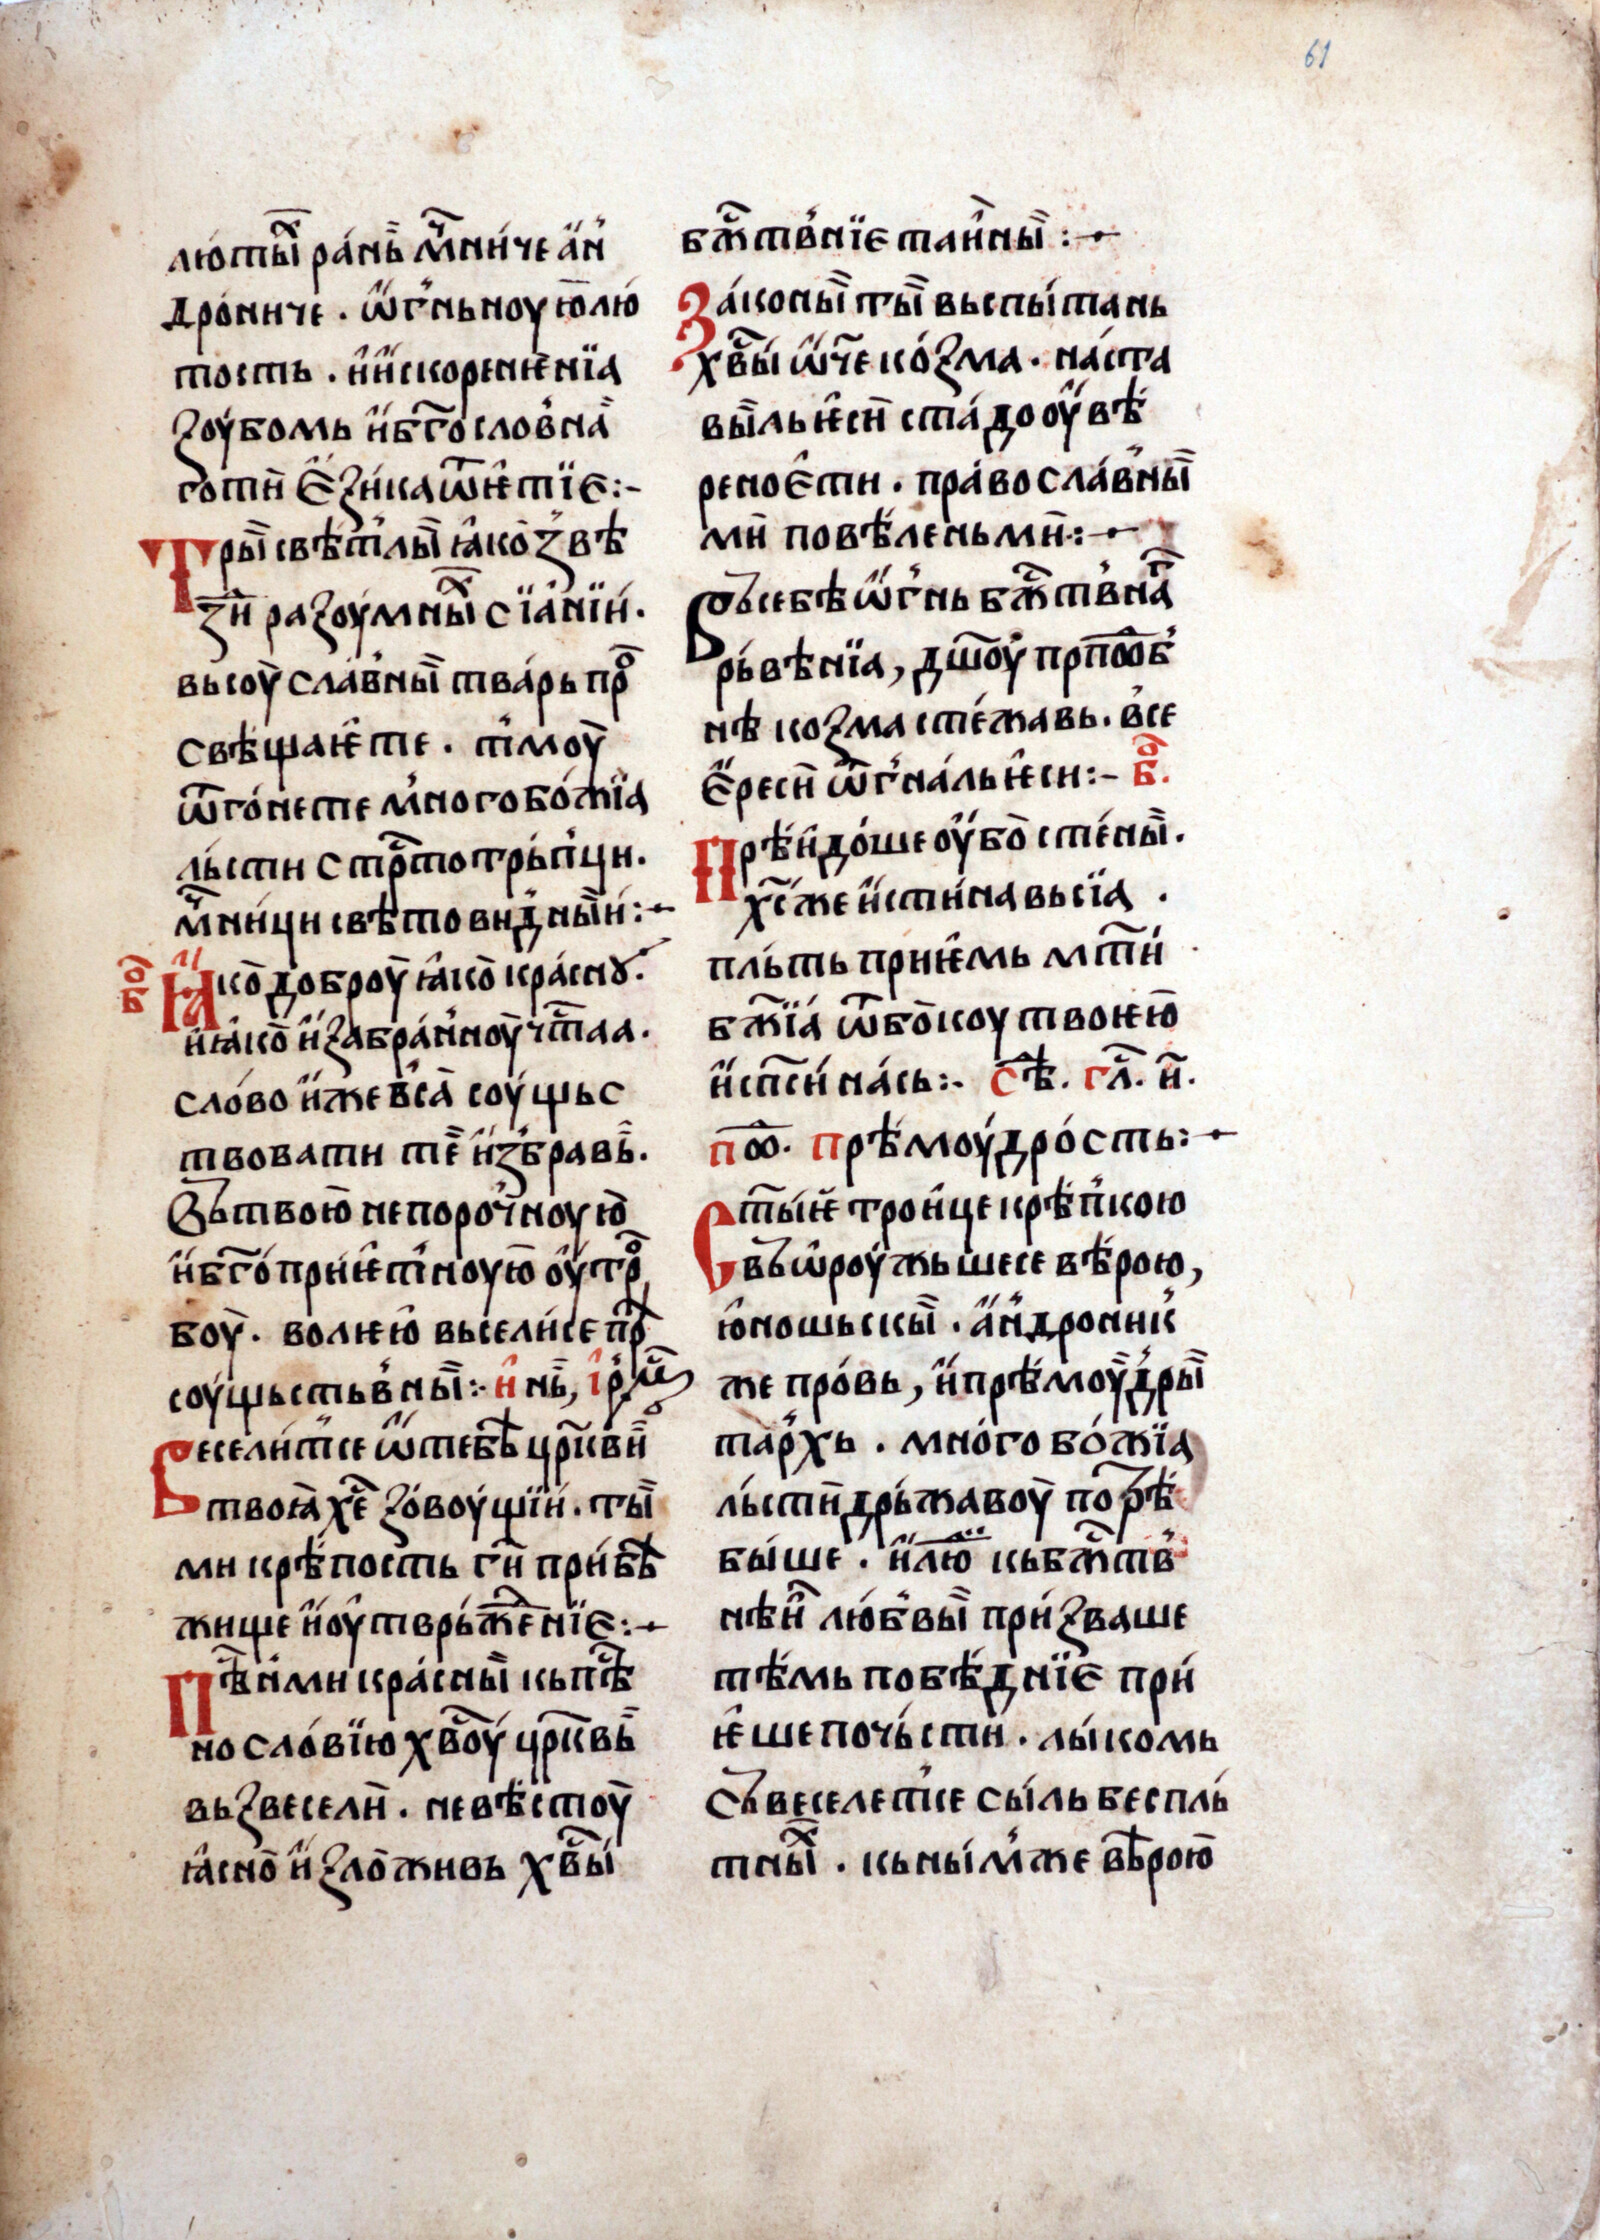 61
лю́тыⷯ҇ ра́нь м҃ни́че а҆́н
дро́ниче . ѿгⷩ҇ьноую лю́
тость . и҆ и҆скорениѥнїа
ꙁоу́бомь и҆ б҃гословна́
готи ѥ҆ꙁи́ка ѿѥтїѥ :-
Тры̏ свѣ́тлы̏ ꙗ҆ко ꙁвѣ
ꙁи̏ раꙁоу́мныⷯ҇ сїа́нїи́ .
въсоу̏ сла́вны̏ тва́рь прⷪ҇
свѣщаѥ҆те . тмоу̏
ѿго́несте мно́гобо́жїа
льсти стрⷭ҇тотрьпци .
м҃ни́ци свѣтовидны̏и́ :~
Ꙗ҆ко̀ доброу̏ ꙗ҆ко̀ кра́сноу .
бⷪ҇
и ꙗ҆ко̀ и҆ꙁабра́нноу̏ чⷭ҇таа .
сло́во и҆же вса̀ соу́щьс
твовати те̏ и҆ꙁбравь̏ .
Въ твою̀ непоро́чноую̀
и҆ б҃го́прие҆тноую̀ оу҆́трⷪ҇
боу̏ . волѥю҆ въсели́се прⷣ҇
соу́щьствны̏ :- и҆ нь̏, і҆рⷨ҇
Весели́тсе ѿ тебѣ̀ црⷦ҇ви̏
твоꙗ̀ хⷭ҇е ꙁо́воу́щїи́ . ты̏
ми крѣ́пость г҃и при́бѣ
жище и҆ оу҆тврьже́нїѥ :~
Пѣⷭ҇нми кра́сны̏ къ пⷭ҇ѣ
носло́вїю х҃воу́ црⷦ҇вь̏
въꙁвесели̏ . невѣ́стоу̏
ꙗ҆сно̀ и҆ꙁло̀живъ х҃вы́
бжⷭ҇твнїѥ таи́нны̏ :~
Ꙁа́коны̏ ты̏ въспы́тань
х҃вы́ ѿ҃че ко́ꙁма . на́ста
вы̏ль ѥ҆си̏ ста́до оу҆́вѣ́
реноѥ҆ти . пра́восла́вны̏
ми̏ повѣ́леньми̏ :~
Въ себѣ ѿгⷩ҇ь бжⷭ҇твнаⷢ҇
рь́вѣнїа, дш҃оу́ прпⷣобⷪ҇
нѣ коꙁма сте́жавь . все
ѥ҆́реси̏ ѿгна́ль ѥ҆си :- бⷪ҇ .
Прѣ́идо́ше оу҆́бо̀ сте́ны̏ .
хⷭ҇ же и҆сти́на въсїа .
пльть приѥ҆мь мт҃и́
б҃жїа́ ѿ бо̀коу твоѥю̀
и҆ сп҃си на́сь :- Сⷣѣ . гл҃ . и҃ .
поⷣ҇ . прѣ́моу́дро́сть :~
Ст҃ы́ѥ трои҆це крѣ́пкою
въѡ҆роу́жьшесе вѣ́рою,
ю҆ношьскы̏ . а҆́ндроник
же про́вь, и҆ прѣ́моу̏дры̏
та́рхь . мно́гобо́жїа
льсти̏ дрьжавоу̏ порⷣѣ
быше . и҆ лю̏ къ бжⷭ҇тв
нѣи̏ лю́бвы̏ при́ꙁваше
тѣ́мь побѣ́днїѥ при́
ѥ҆ше почь́сти̏ . лы́комь
съвеселетсе сы́ль беспль́
тныⷯ҇ . къ ны́мже вѣ́рою̀